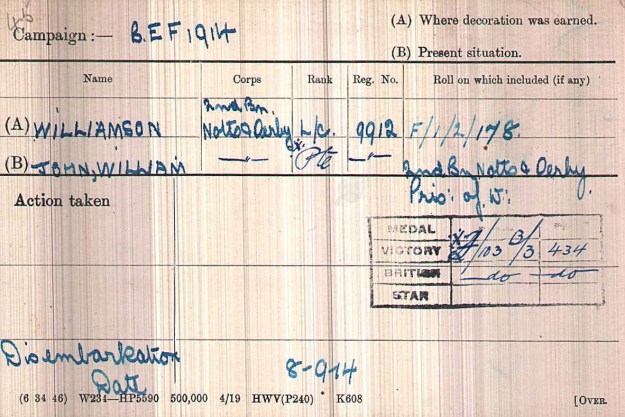 Campaign :— B.E.F 1914
(A) Where decoration was earned.
(B) Present situation.
Name Corps Rank Reg. No. Roll on which included (if any)
2nd Bn.
(A) WILLIAMSON Notts & Derby L/c. 9912 F/1/2/178.
(B) JOHN, WILLIAM —"— x. Pte —"— 2nd Bn Notts & Derby.
Pris: of W:
Action taken
MEDAL
VICTORY 103 B/3 434
BRITISH —do— —do—
STAR
Disembarkation
Date 8-9-14
(6 34 46) W234—HP5590 500,000 4/19 HWV(P240) K608 [OVER.